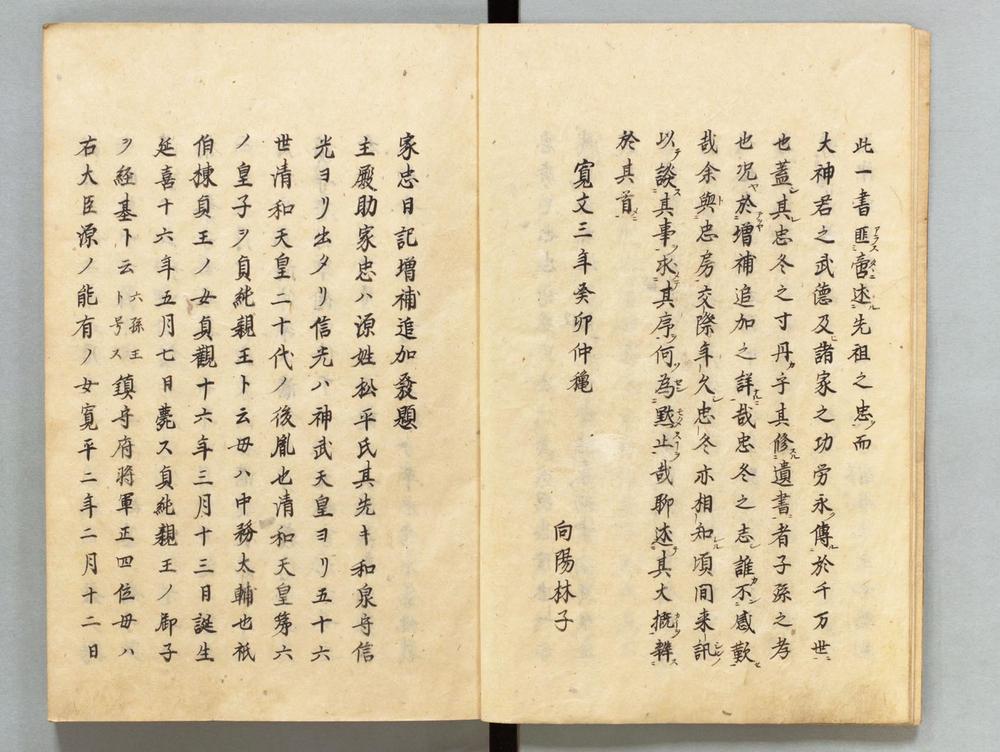 此一書匪啻述先祖之忠而
大神君之武徳及諸家之功労永傳於千万世
也蓋其忠冬之寸丹乎其修遺書者子孫之孝
也况於増補追加之詳哉忠冬之志誰不感歎
哉余與忠房交際年久忠冬亦相知頃間来訊
以談其事求其序何為黙止哉聊述其大概辨
於其首
寛文三年癸卯仲穐
向陽林子
家忠日記増補追加發題
主殿助家忠ハ源姓松平氏其先キ和泉守信
光ヨリ出タリ信光ハ神武天皇ヨリ五十六
世清和天皇二十代ノ後胤也清和天皇第六
ノ皇子ヲ貞純親王ト云母ハ中務太輔也祇
伯棟貞王ノ女貞觀十六年三月十三日誕生
延喜十六年五月七日薨ス貞純親王ノ御子
ヲ経基ト云六孫王ト号ス鎮守府将軍正四位母ハ
右大臣源ノ能有ノ女寛平二年二月十二日